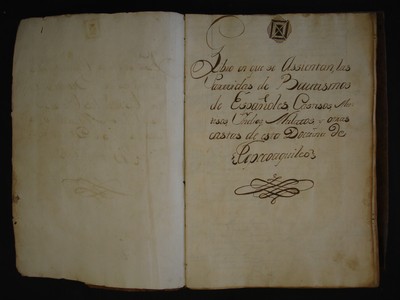 Libro en que se Assientan, las
Partidas de Bautismos
de Españoles, Castisos, Mes-
tisos, Yndios, Mulatos, y otras
castas de esta Doctrina de